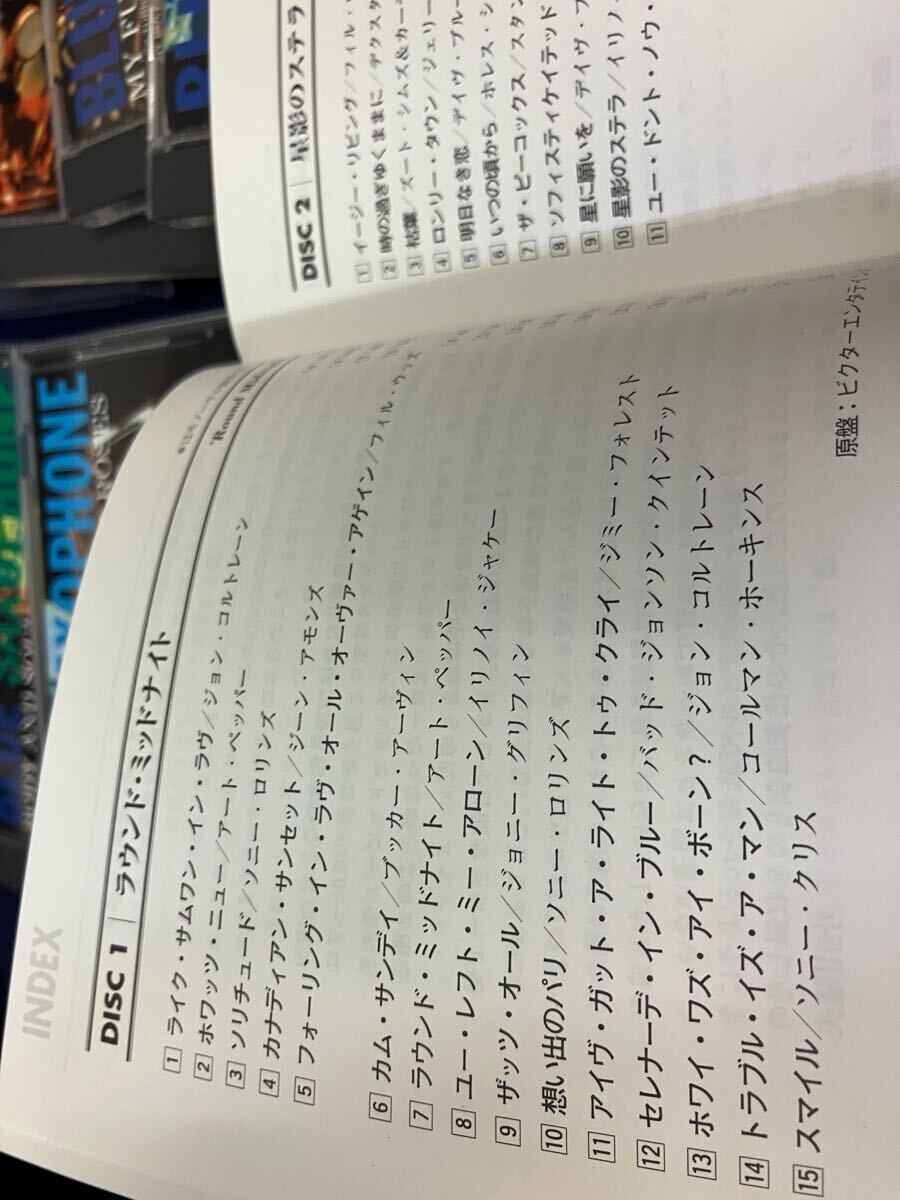 INDEX
DISC 1 | ラウンド・ミッドナイト
Round
1 ライク・サムワン・イン・ラヴ/ジョン・コルトレーン
2 ホワッツ・ニュー/アート・ペッパー
3 ソリチュード/ソニー・ロリンズ
4 カナディアン・サンセット/ジーン・アモンズ
5 フォーリング・イン・ラヴ・オール・オーヴァー・アゲイン/フィル・ウッズ
6 カム・サンデイ/ブッカー・アーヴィン
7 ラウンド・ミッドナイト/アート・ペッパー
8 ユー・レフト・ミー・アローン/イリノイ・ジャケー
9 ザッツ・オール/ジョニー・グリフィン
10 想い出のパリ/ソニー・ロリンズ
11 アイヴ・ガット・ア・ライト・トゥ・クライ/ジミー・フォレスト
12 セレナーデ・イン・ブルー/バッド・ジョンソン・クインテット
13 ホワイ・ワズ・アイ・ボーン?/ジョン・コルトレーン
14 トラブル・イズ・ア・マン/コールマン・ホーキンス
15 スマイル/ソニー・クリス
原盤:ビクターエンタテイン
DISC 2 | 星影のステラ
1 イージー・リビング/フィル・
2 時の過ぎゆくままに/デクスタ
3 枯葉/ズート・シムズ&カー
4 ロンリー・タウン/ジェリー
5 明日なき恋/デイヴ・ブルー
6 いつの頃から/ホレス・シ
7 ザ・ピーコックス/スタン
8 ソフィスティケイテッド
9 星に願いを/デイヴ・ブ
10 星影のステラ/イリノ
11 ユー・ドント・ノウ・
BLU
MY FU
OPHONE
ROSES